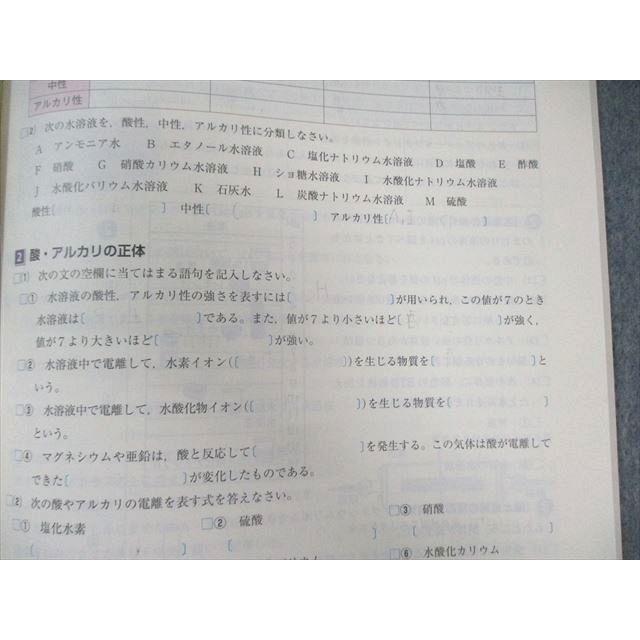 中性
アルカリ性
□(2) 次の水溶液を，酸性，中性，アルカリ性に分類しなさい。
A アンモニア水 B エタノール水溶液 C 塩化ナトリウム水溶液 D 塩酸 E 酢酸
F 硝酸 G 硝酸カリウム水溶液 H ショ糖水溶液 I 水酸化ナトリウム水溶液
J 水酸化バリウム水溶液 K 石灰水 L 炭酸ナトリウム水溶液 M 硫酸
酸性[ ] 中性[ ] アルカリ性[ ]
2 酸・アルカリの正体
□(1) 次の文の空欄に当てはまる語句を記入しなさい。
□① 水溶液の酸性，アルカリ性の強さを表すには[ ]が用いられ，この値が7のとき
水溶液は[ ]である。また，値が7より小さいほど[ ]が強く，
値が7より大きいほど[ ]が強い。
□② 水溶液中で電離して，水素イオン([ ])を生じる物質を[ ]と
いう。
□③ 水溶液中で電離して，水酸化物イオン([ ])を生じる物質を[ ]
という。
□④ マグネシウムや亜鉛は，酸と反応して[ ]を発生する。この気体は酸が電離して
できた[ ]が変化したものである。
□(2) 次の酸やアルカリの電離を表す式を答えなさい。
□① 塩化水素 □② 硫酸 □③ 硝酸
[ ] [ ] [ ]
□⑥ 水酸化カリウム